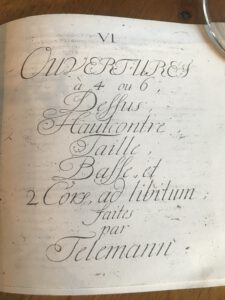 VI
OUVERTURES
à 4 ou 6,
Dessus,
Hautcontre,
Taille,
Basse, et
2 Cors, ad libitum,
faites
par
Telemann